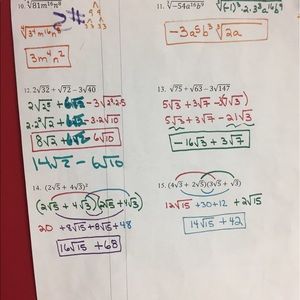 10. ∜81m¹⁶n⁸
∜3⁴m¹⁶n⁸
3m⁴n²
9 9
3 3 3 3
11. ∛-54a¹⁶b⁹
∛(-1)³·2·3³a¹⁶b⁹
-3a⁵b³∛2a
12. 2√32 + √72 - 3√40
2√2⁵ + 6√2 - 3√2²·2·5
2·2²√2 + 6√2 - 3·2√10
8√2 + 6√2 - 6√10
14√2 - 6√10
13. √75 + √63 - 3√147
5√3 + 3√7 - 3(7√3)
5√3 + 3√7 - 21√3
-16√3 + 3√7
14. (2√5 + 4√3)²
(2√5 + 4√3)(2√5 + 4√3)
20 + 8√15 + 8√15 + 48
16√15 + 68
15. (4√3 + 2√5)(3√5 + √3)
12√15 + 30 + 12 + 2√15
14√15 + 42